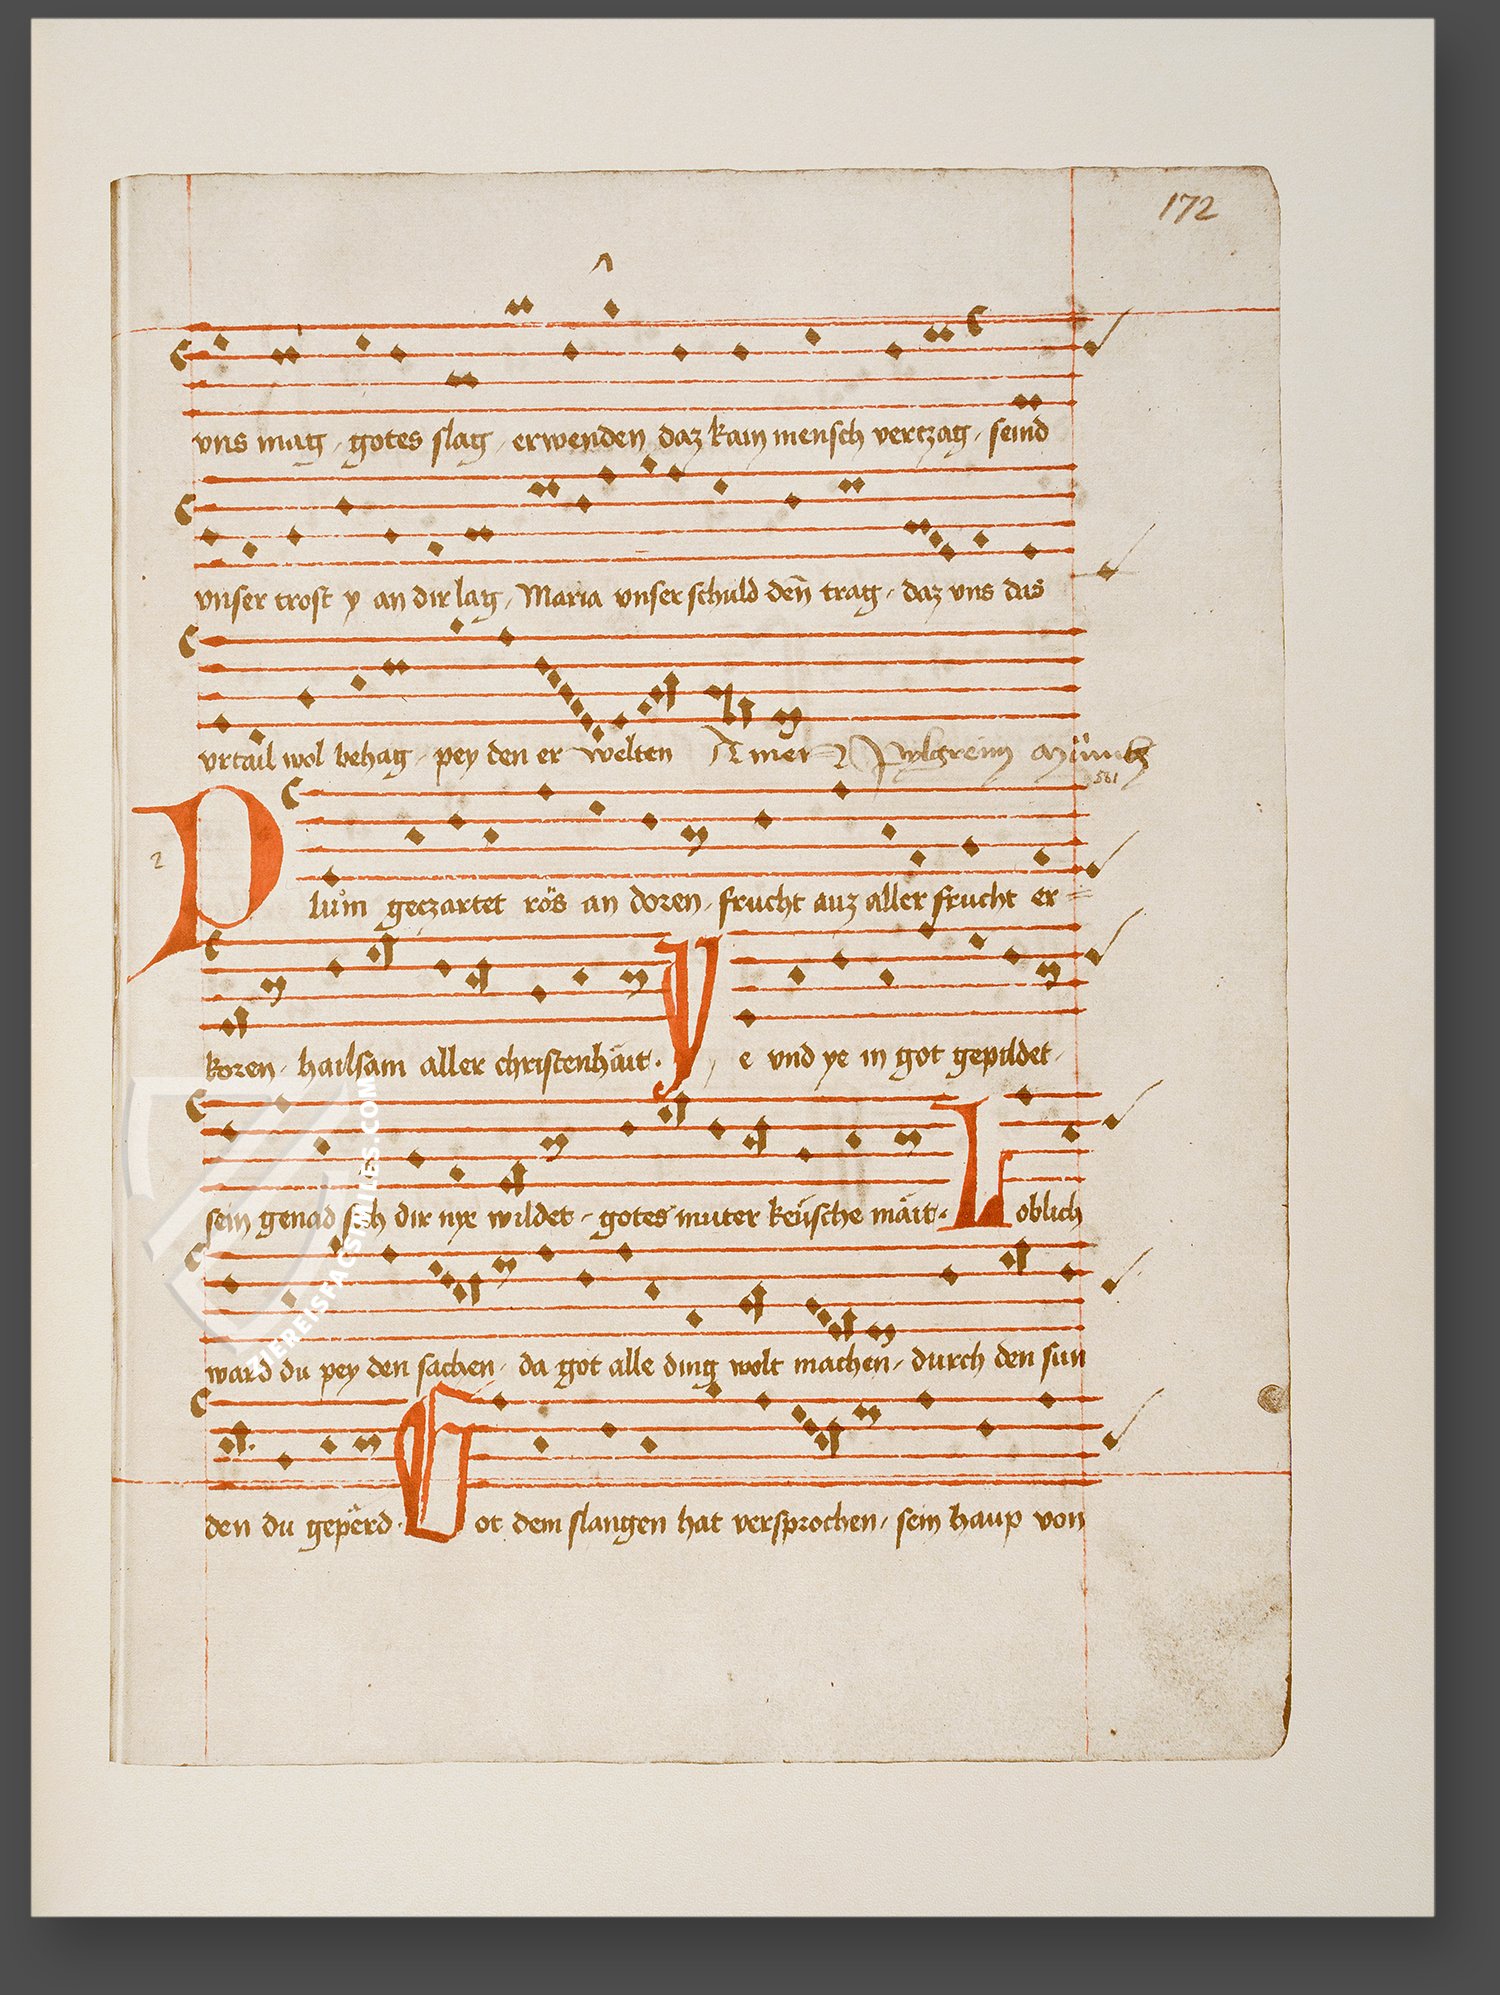 172
vns mag / gotes slag / erwenden daz kain mensch vertzag / seind
vnser trost y an dir lag / Maria vnser schuld deñ trag / daz vns das
vrtail wol behag / pey den er welten Amen Pylgreim Münich
561
2
Plům geczartet rös an doren / frucht auz aller frucht er=
koren / hailsam aller christenhäit · Y e vnd ye in got gepildet /
sein genad sich dir nye wildet / gotes muter keüsche mäit · Loblich
ward du pey den sachen / da got alle ding wolt machen / durch den sun
den du gepërd · Got dem slangen hat versprochen / sein haup von
ZIEREISFACSIMILES.COM